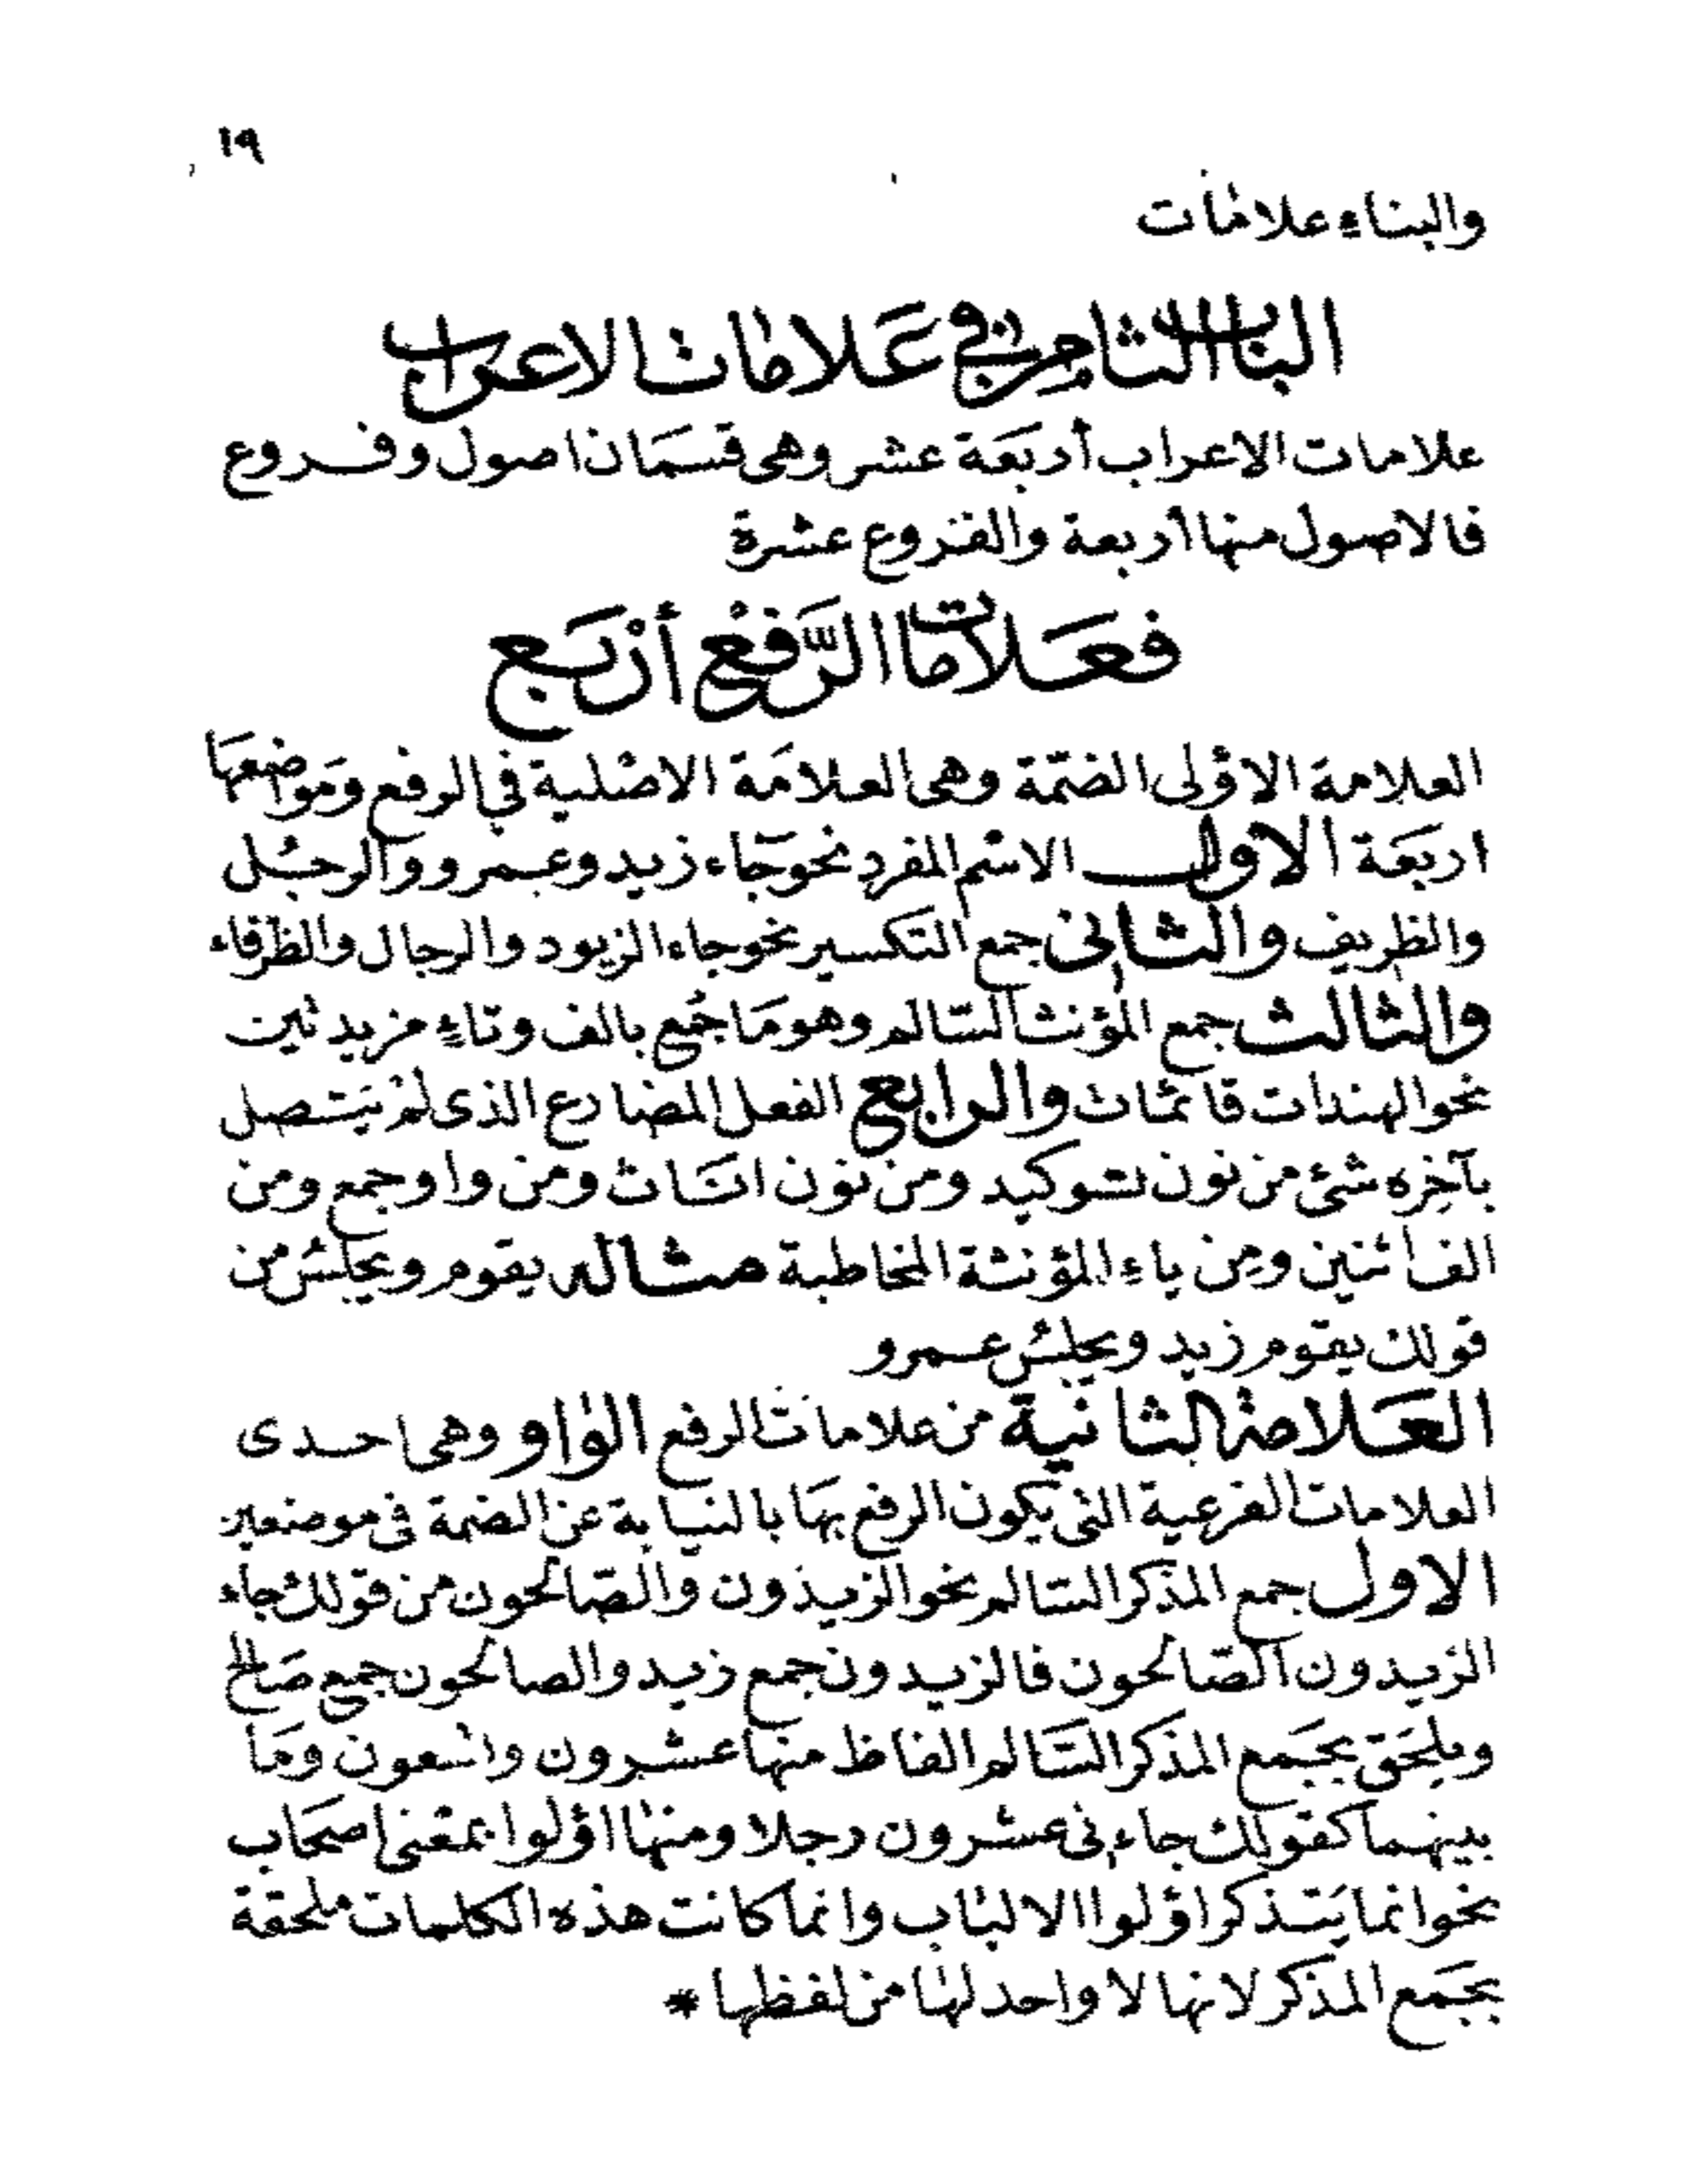 ١٩
والبناء علامات
الباب الثامن في علامات الاعراب
علامات الاعراب أربعَة عشر وهى قسمَان اصول وفروع
فالاصول منها أربعة والفروع عشرة
فعَلامات الرَّفع أربَع
العلامة الاؤلى الضمّة وهى العلامَة الاصْلية في الرفع ومَواضعهَا
اربعَة الاول الاسْم المفرد نحو جَاء زيد وعمرو والرجُل
والظريف والثانى جمع التكسير نحو جاء الزيود والرجال والظرفاء
والثالث جمع المؤنث السّالم وهو مَا جُمع بالف وتاءٍ مزيدتين
نحو الهندات قائمات والرابع الفعل المضارع الذى لمْ يَتصل
بآخِره شئ من نون توكيد ومن نون اناث ومن واو جمع ومن
الف اثنين ومِن ياءِ المؤنثة المخاطبة مثاله يقوم ويجلسُ من
قولك يقوم زيد ويجلسُ عمرو
العَلامة الثانية من علامات الرفع الواو وهى احدى
العلامات الفرعية التى يكون الرفع بهَا بالنيابة عن الضمة فى موضعين
الاول جمع المذكر السّالم نحو الزيدون والصّالحون من قولك جاء
الزيدون الصّالحون فالزيدون جمع زيد والصالحون جمع صَالح
ويلحَق بجَمع المذكر السَّالم الفاظ منها عشرون وتسعون ومَا
بينهما كقولك جاءنى عشرون رجلا ومنها اؤلوا بمعْنى اصحَاب
نحو انما يَتذكر اؤلوا الالباب وانما كانت هذه الكلمات ملحقة
بجَمع المذكر لانها لا واحد لها من لفظها *